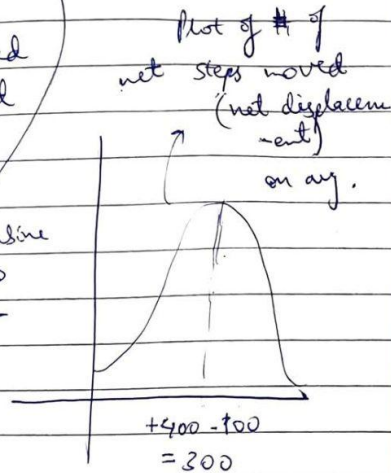 Plot of # of
net steps moved
(net displacem
-ent)
on avg.
sine
+400 -100
= 300